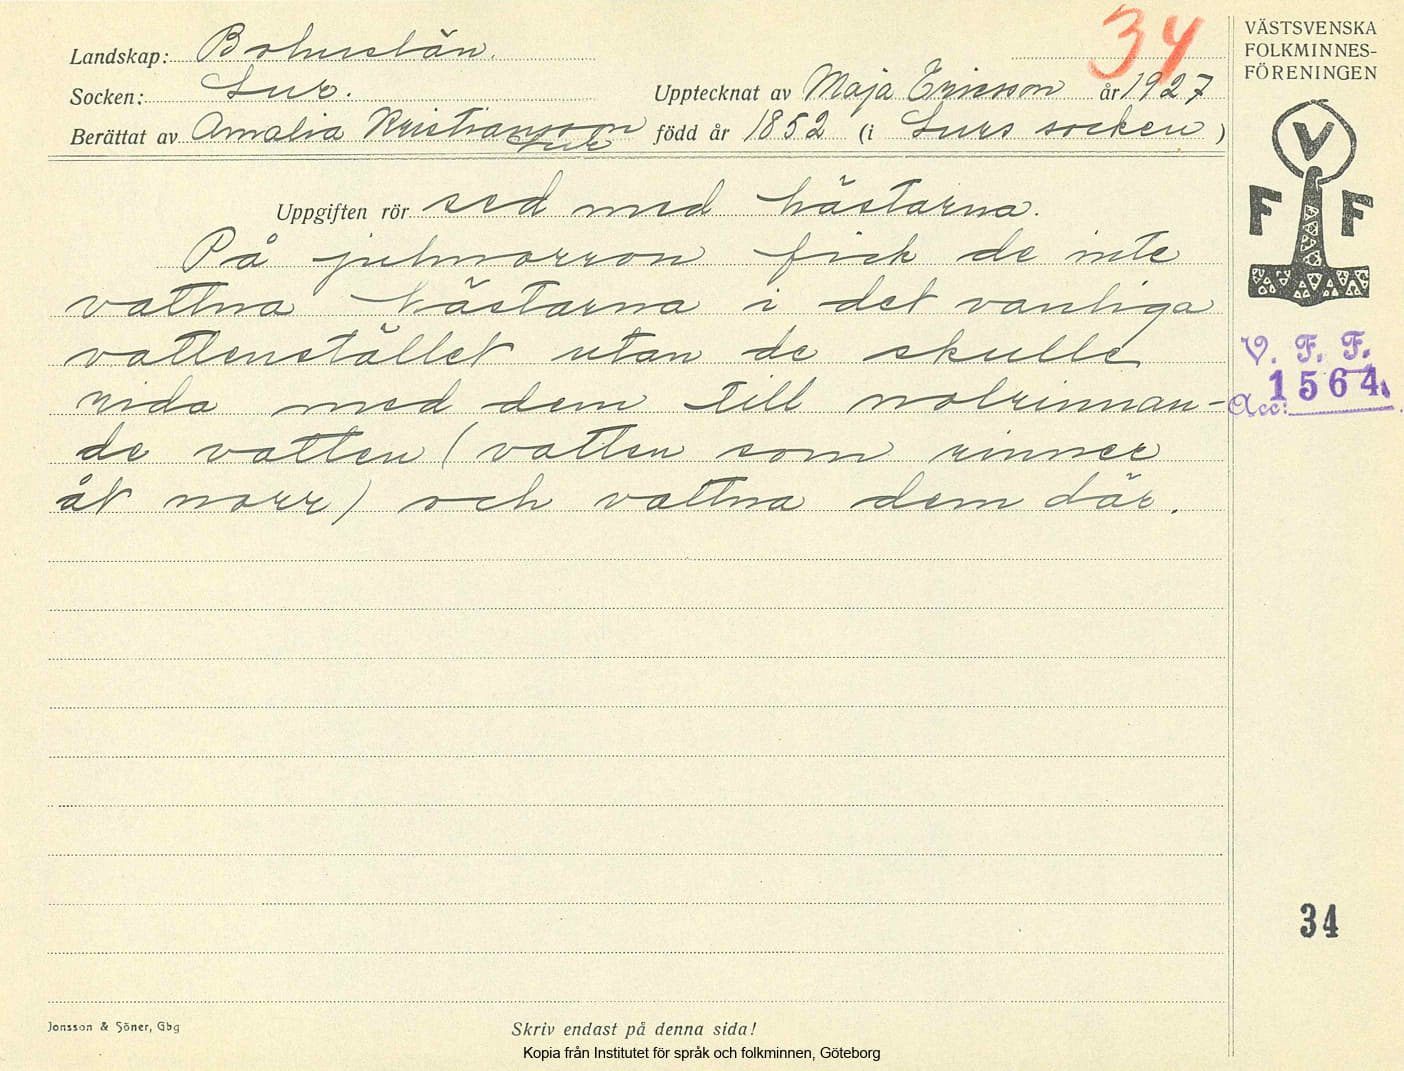 34
Landskap: Bohuslän.
Socken: Lur.
Upptecknat av Maja Ericsson år 1927
Berättat av Amalia Kristiansson född år 1852 (i Lurs socken)
Lur
Uppgiften rör sed med hästarna.
På julmorron fick de inte
vattna hästarna i det vanliga
vattenstället utan de skulle
rida med dem till nolrinnan-
de vatten (vatten som rinner
åt norr) och vattna dem där.
VÄSTSVENSKA
FOLKMINNES-
FÖRENINGEN
V
F F
V. F. F.
Acc: 1564.
34
Jonsson & Söner, Gbg
Skriv endast på denna sida!
Kopia från Institutet för språk och folkminnen, Göteborg